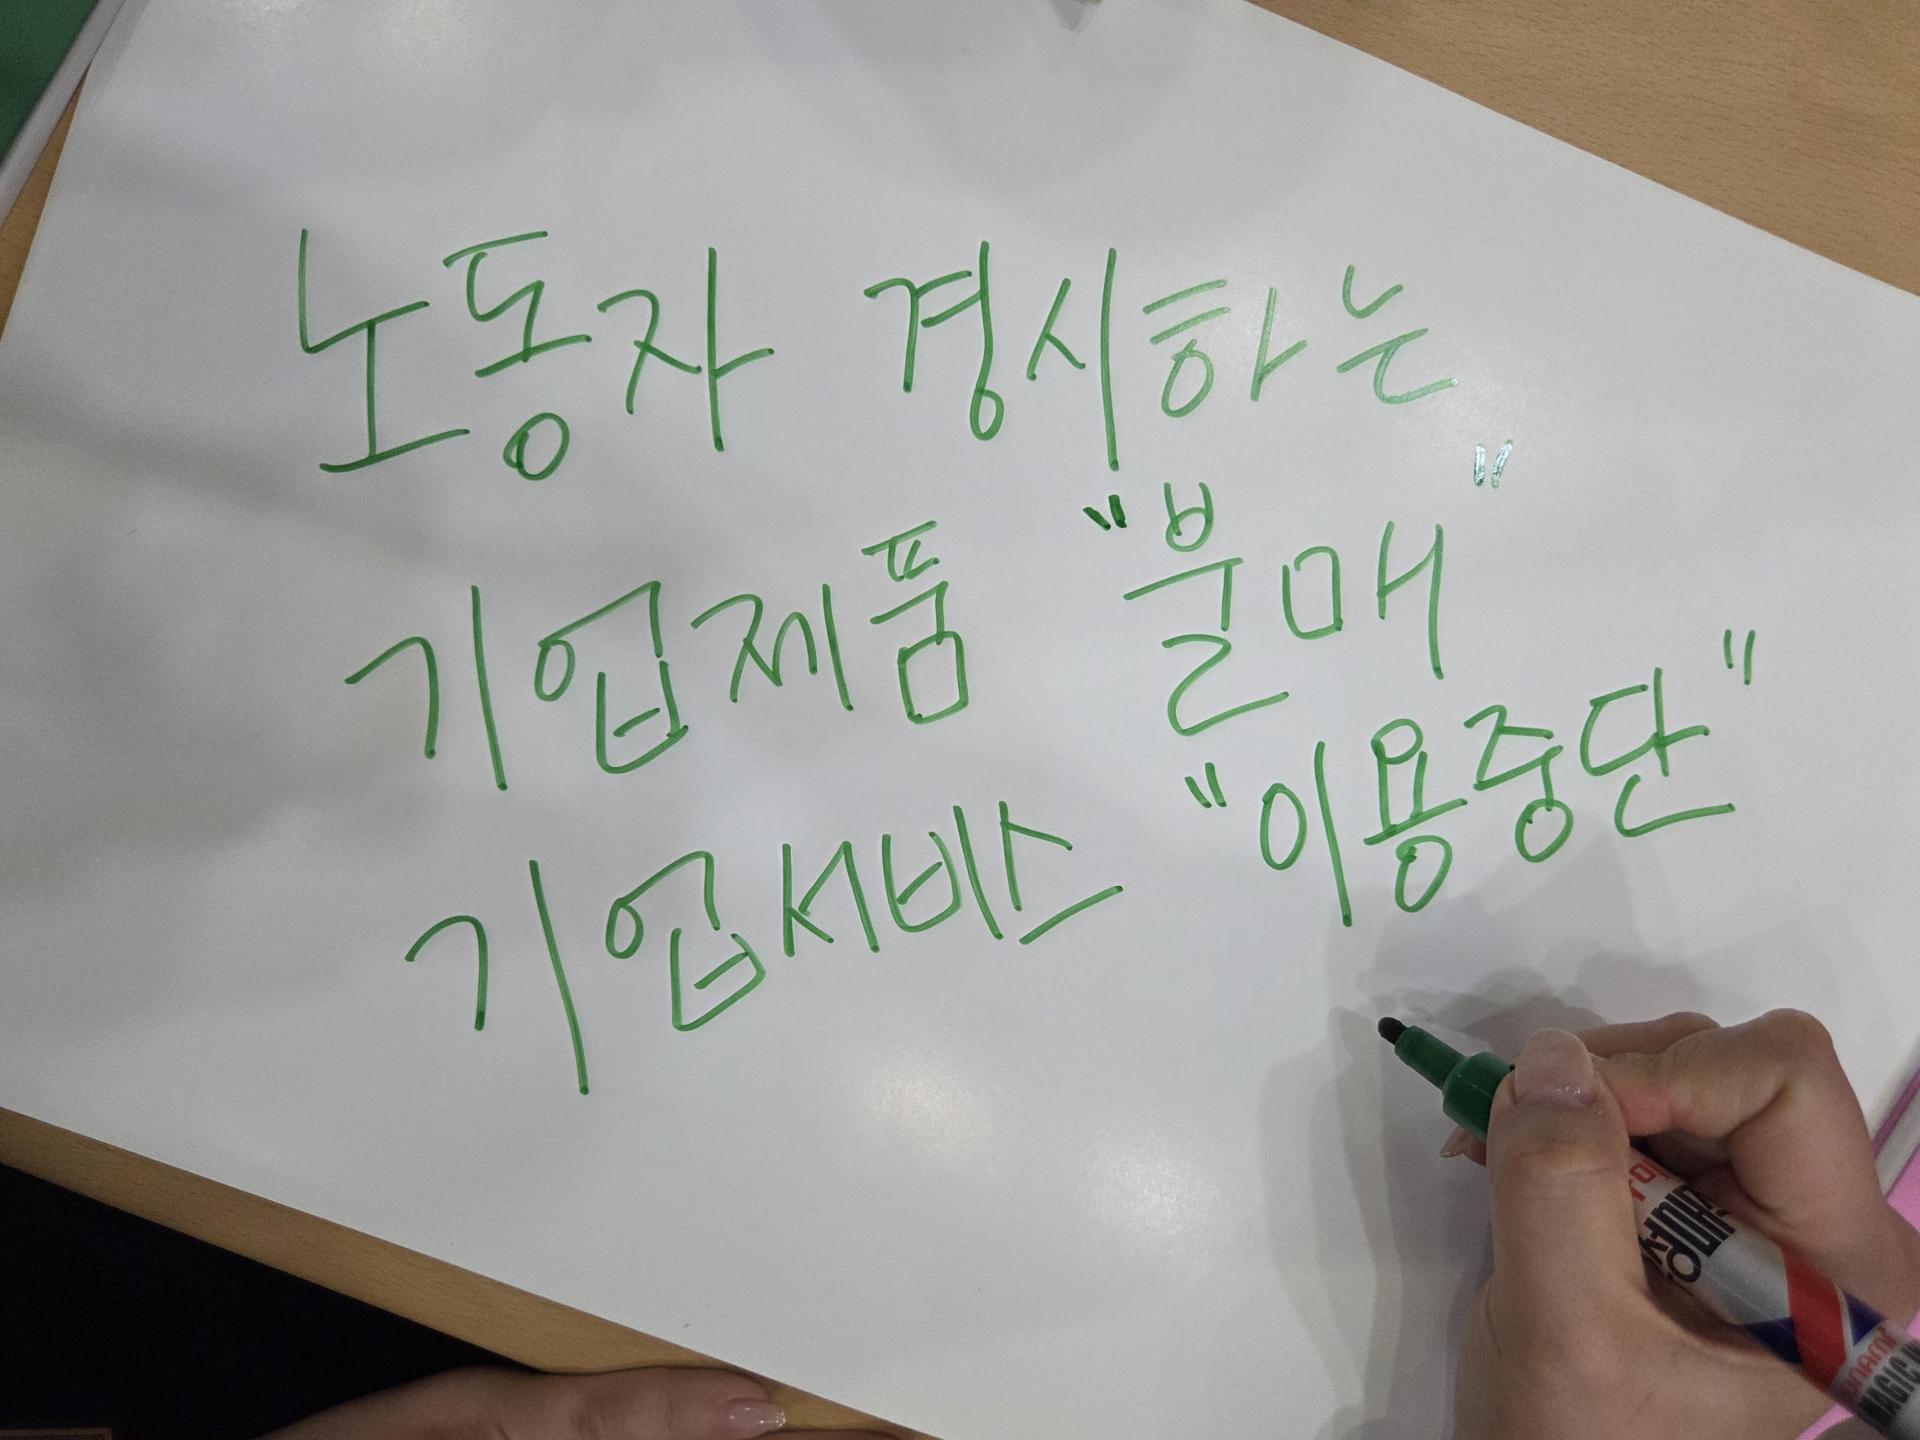 노동자 경시하는
기업제품 "불매"
기업서비스 "이용중단"
MAGIC